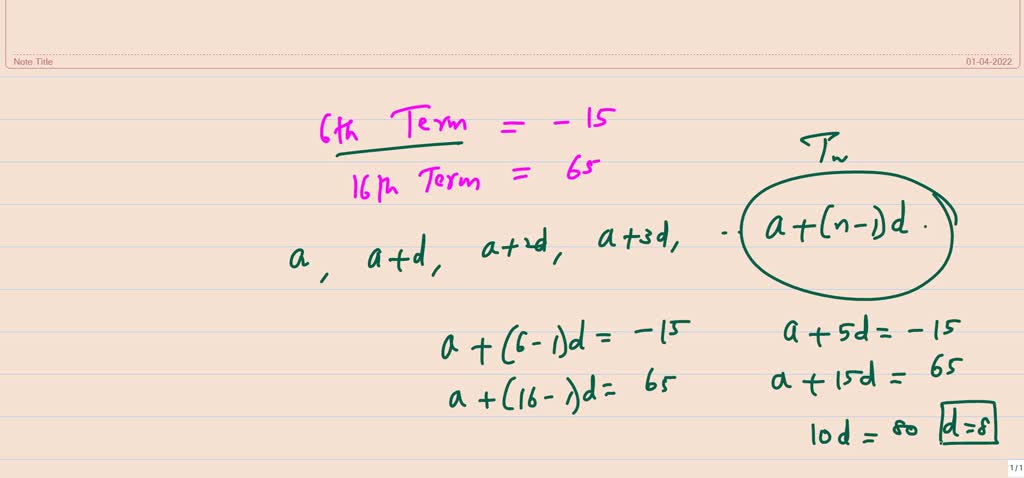 Note Title
01-04-2022
6th Term = - 15
16th Term = 65
Tn
a, a+d, a+2d, a+3d, .. a+(n-1)d.
a + (6-1)d = -15
a + (16-1)d = 65
a + 5d = -15
a + 15d = 65
10d = 80 d=8
1/1